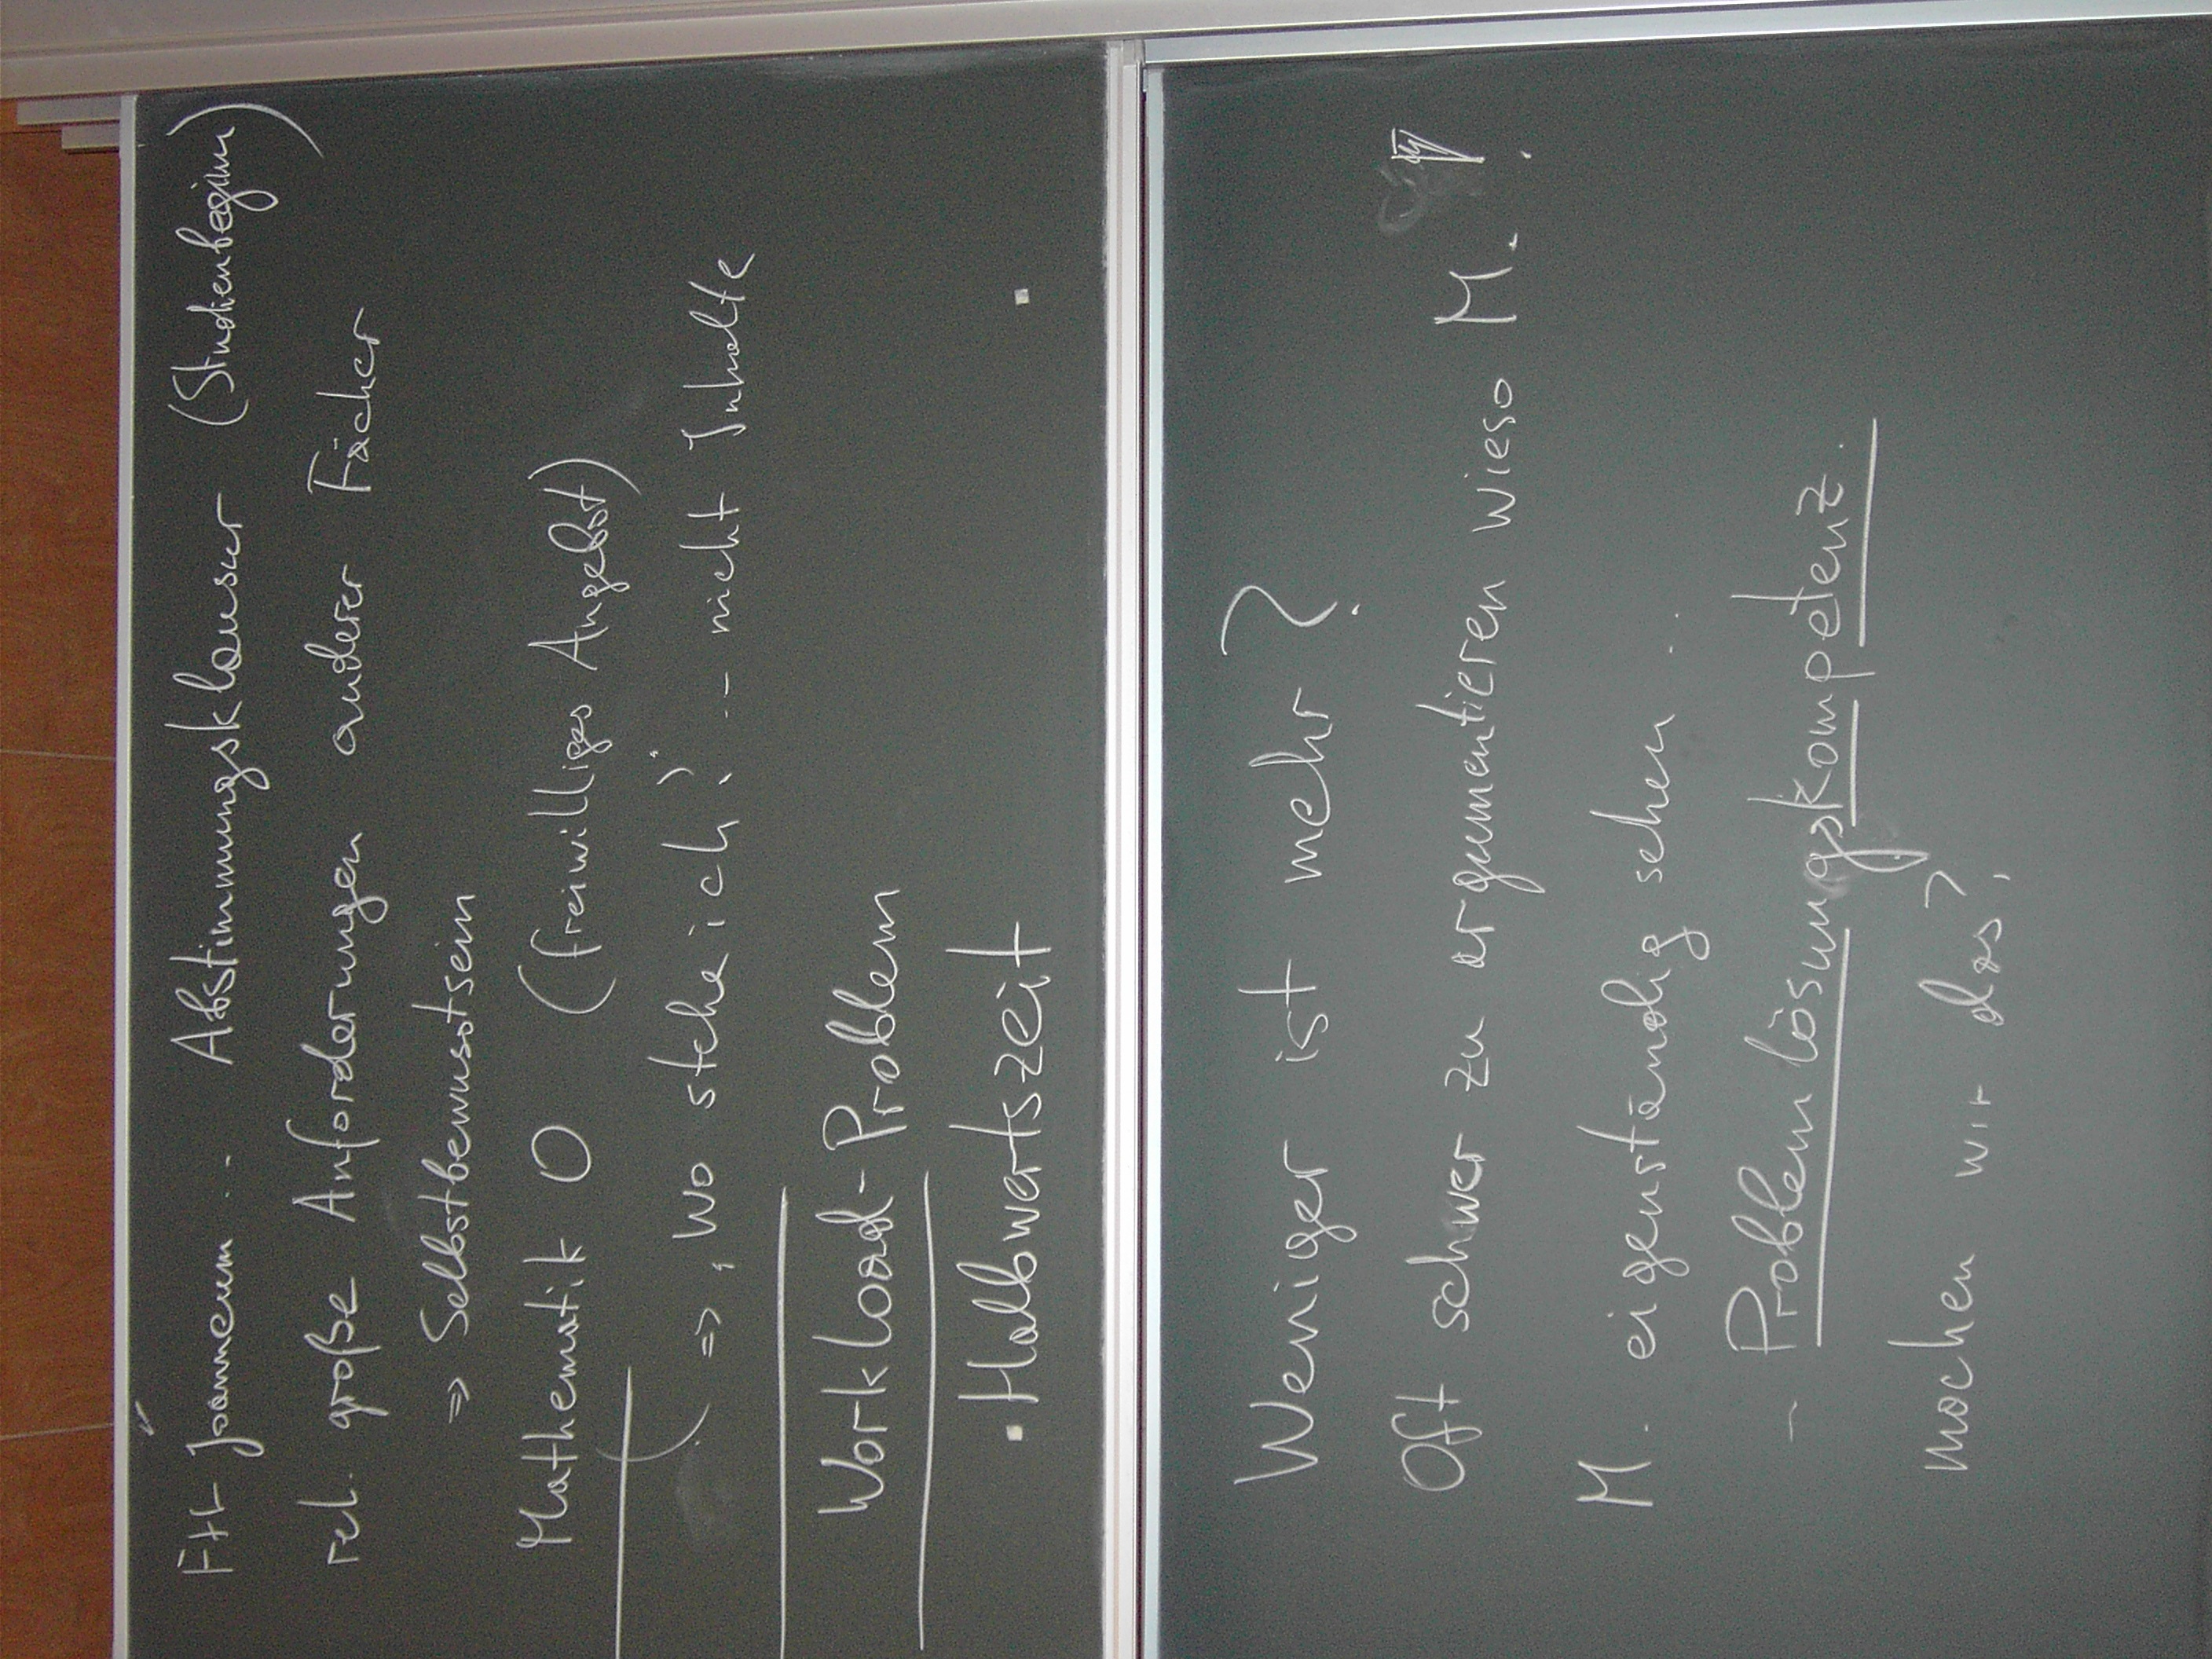 FH Joanneum .. Abstimmungsklausur (Studienbeginn)
rel. große Anforderungen anderer Fächer
=> Selbstbewusstsein
Mathematik 0 (freiwilliges Angebot)
( => , Wo stehe ich? ' ... nicht Inhalte
Workload-Problem
• Halbwertszeit
Weniger ist mehr?
Oft schwer zu argumentieren wieso M.
M. eigenständig sehen ..
- Problemlösungskompetenz.
machen wir das?